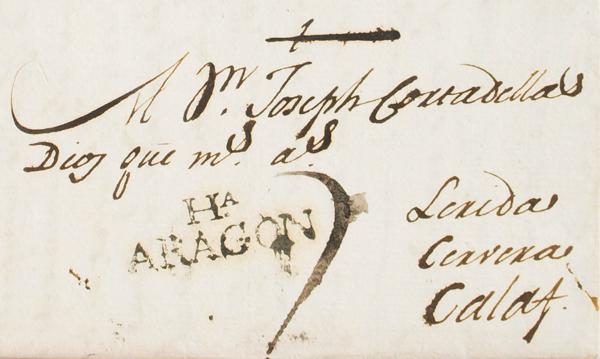 Al Sr. Joseph Cortadellas
Dios que ms. as.
HA
ARAGON
7
Lerida
Cervera
Calaf.